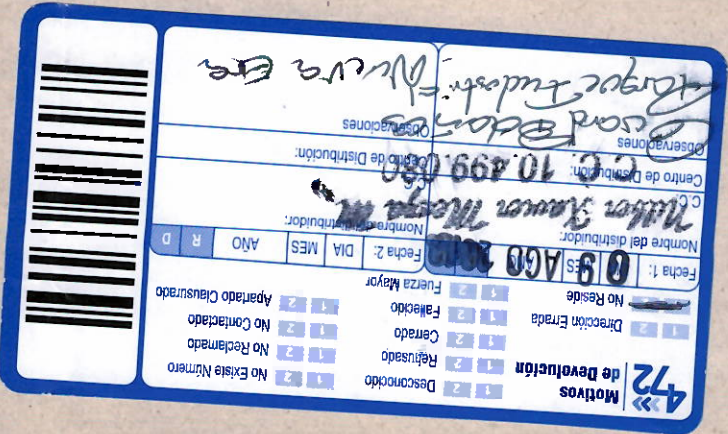 472
Motivos
de Devolución
1 2 Desconocido
1 2 Rehusado
1 2 Cerrado
1 2 Fallecido
1 2 Fuerza Mayor
1 2 No Existe Número
1 2 No Reclamado
1 2 No Contactado
1 2 Apartado Clausurado
1 2 Dirección Errada
No Reside
Fecha 1: 09 MES AGO
Fecha 2: DIA MES AÑO R D
Nombre del distribuidor:
Nombre del distribuidor:
C.C.
C.C. 10.499.080
Centro de Distribución:
Centro de Distribución:
Observaciones
Observaciones
Parque Industrial
Nueva Era